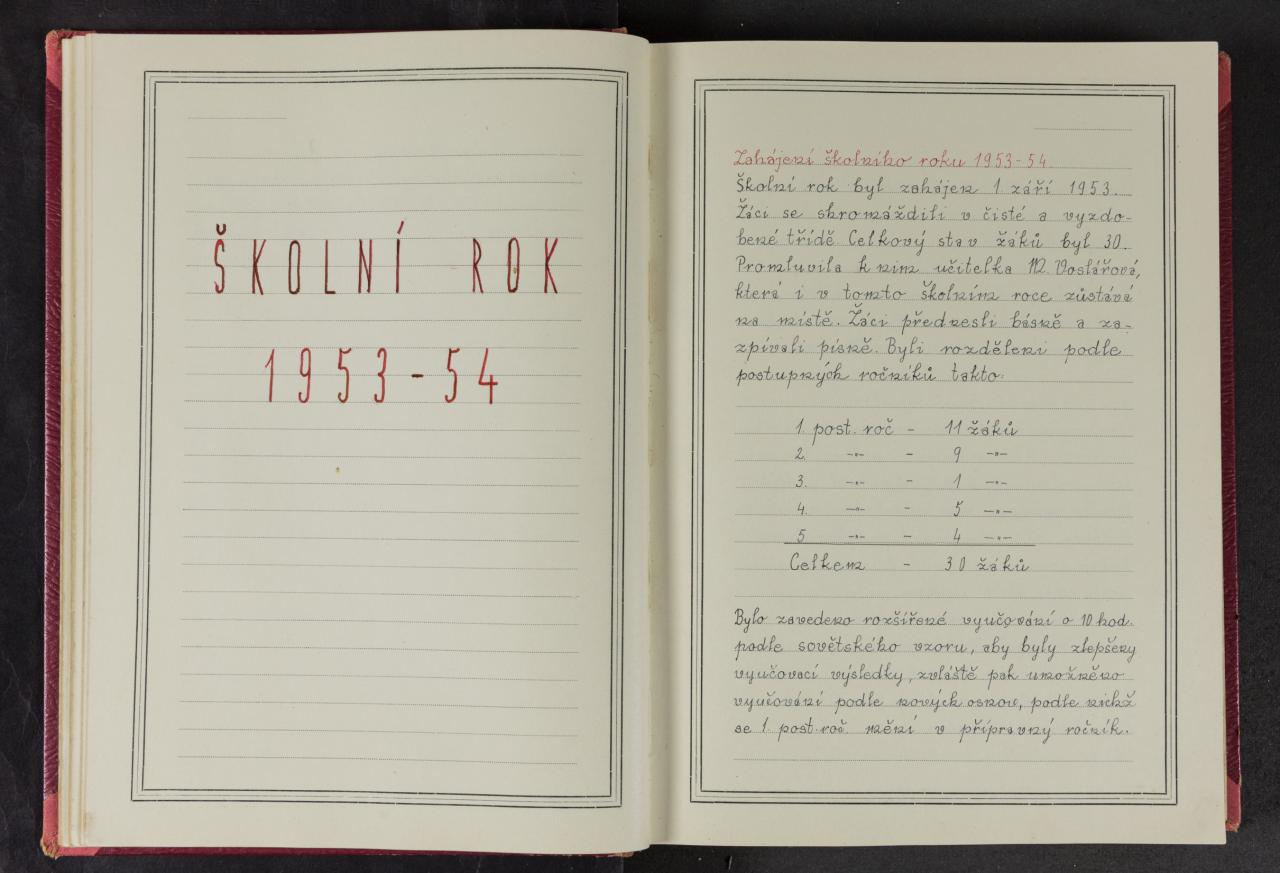 ŠKOLNÍ ROK
1953-54
Zahájení školního roku 1953-54.
Školní rok byl zahájen 1. září 1953.
Žáci se shromáždili v čisté a vyzdo-
bené třídě. Celkový stav žáků byl 30.
Promluvila k nim učitelka M. Voslářová,
která i v tomto školním roce zůstává
na místě. Žáci přednesli básně a za-
zpívali písně. Byli rozděleni podle
postupných ročníků takto:
1. post. roč - 11 žáků
2. -"- - 9 -"-
3. -"- - 1 -"-
4. -"- - 5 -"-
5 -"- - 4 -"-
Celkem - 30 žáků
Bylo zavedeno rozšířené vyučování o 10 hod.
podle sovětského vzoru, aby byly zlepšeny
vyučovací výsledky, zvláště pak umožněno
vyučování podle nových osnov, podle nichž
se 1. post. roč. mění v přípravný ročník.